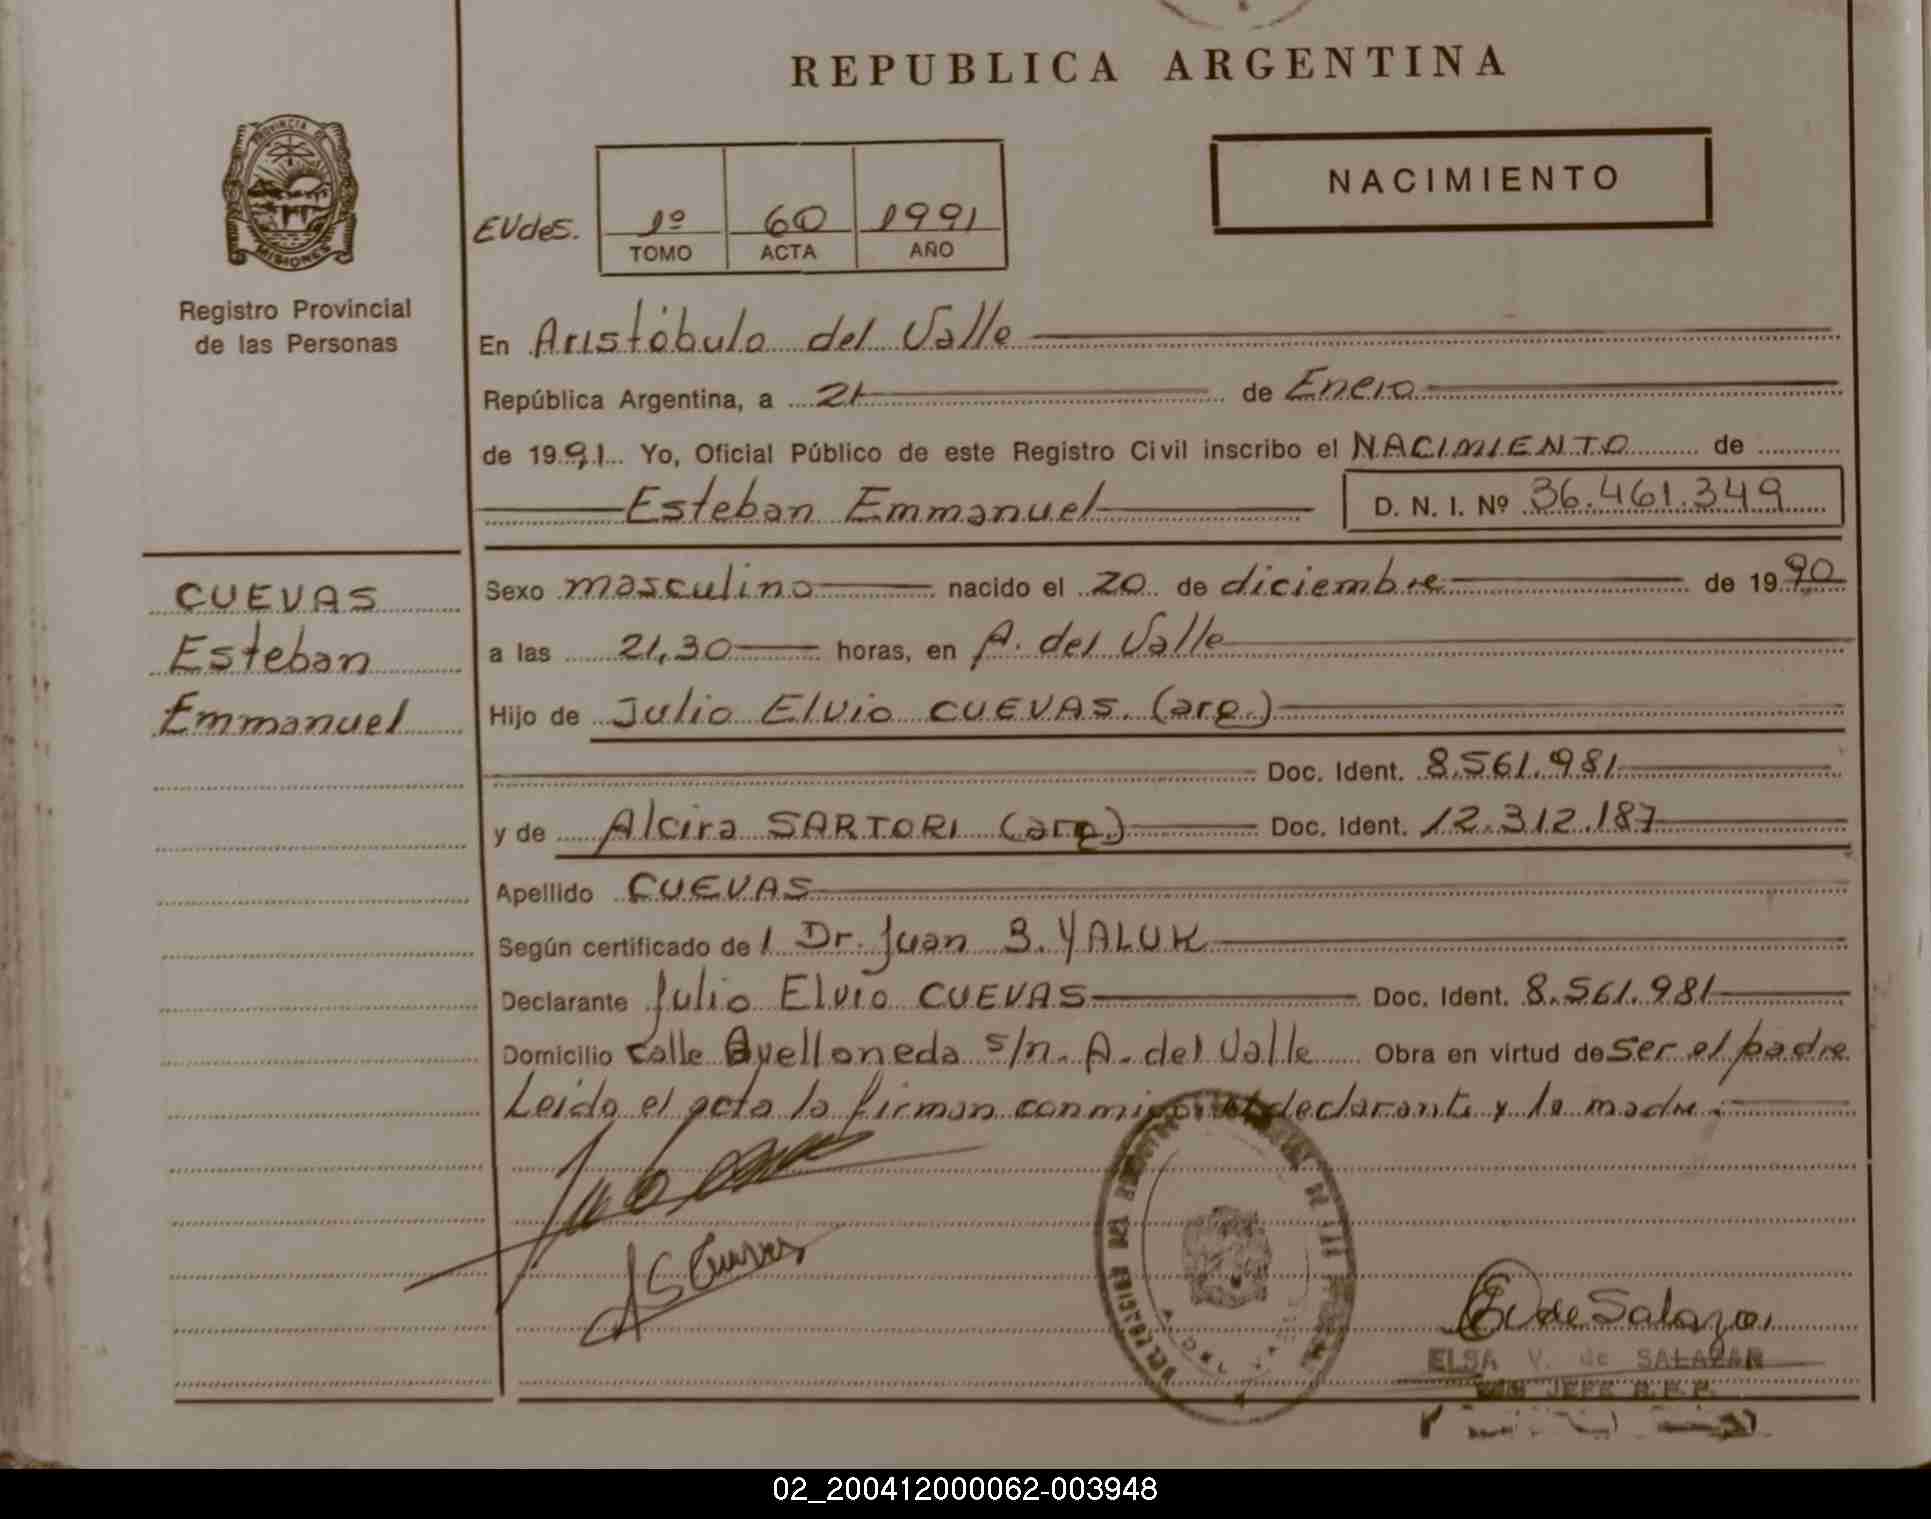 REPUBLICA ARGENTINA
PROVINCIA DE
MISIONES
Registro Provincial
de las Personas
NACIMIENTO
EVdeS. 1º 60 1991
TOMO ACTA AÑO
En Aristóbulo del Valle
República Argentina, a 21 de Enero
de 1991 Yo, Oficial Público de este Registro Civil inscribo el NACIMIENTO de
Esteban Emmanuel D. N. I. Nº 36.461.349
CUEVAS
Esteban
Emmanuel
Sexo masculino nacido el 20 de diciembre de 1990
a las 21,30 horas, en A. del Valle
Hijo de Julio Elvio CUEVAS. (arg.)
Doc. Ident. 8.561.981
y de Alcira SARTORI (arg.) Doc. Ident. 12.312.187
Apellido CUEVAS
Según certificado de l Dr. Juan B. YALUK
Declarante Julio Elvio CUEVAS Doc. Ident. 8.561.981
Domicilio calle Avellaneda s/n. A. del Valle Obra en virtud de ser el padre
Leida el acta la firman conmigo el declarante y la madre.
AS Cuevas
EV de Salazar
ELSA V. de SALAZAR
JEFE R.P.P.
02_200412000062-003948